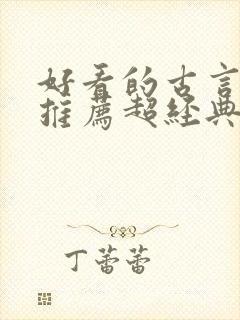 好看的古言
推薦超經典
丁蕾蕾